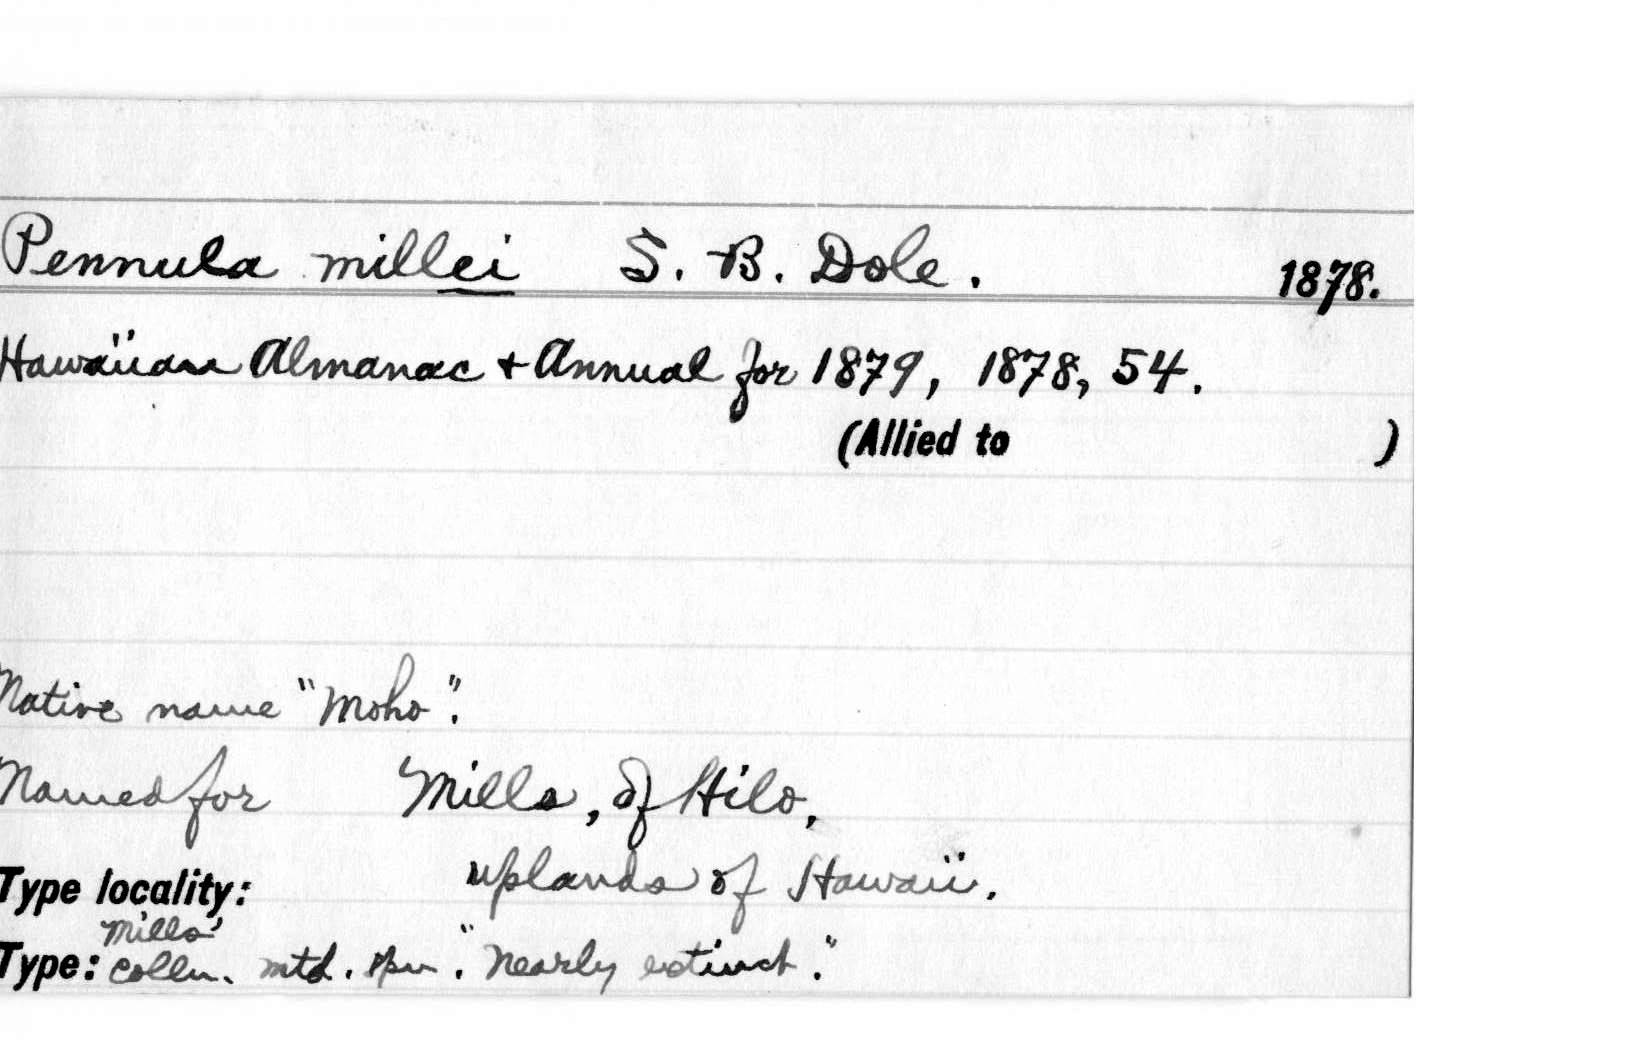 Pennula millei S. B. Dole. 1878.
Hawaiian Almanac + Annual for 1879, 1878, 54.
(Allied to )
Native name "Moho".
Named for Mills, of Hilo,
Type locality: uplands of Hawaii.
Mills'
Type: colln. mtd. spn. "nearly extinct".